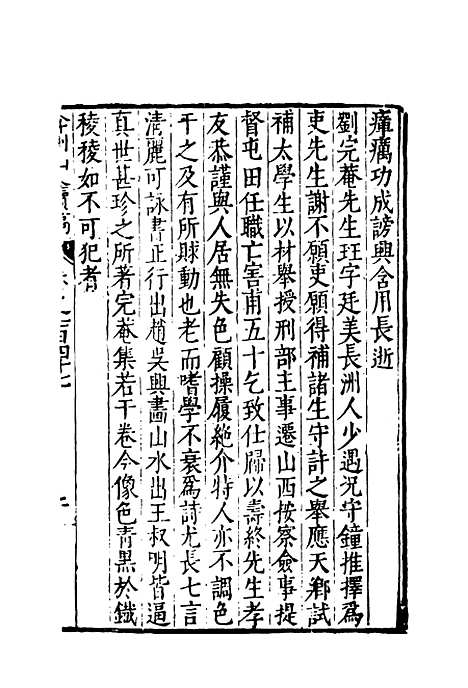 瘴癘功成謗興舍用長逝
劉完菴先生珏字廷美長洲人少遇況守鐘推擇爲
吏先生謝不願吏願得補諸生守許之舉應天鄉試
補太學生以材舉授刑部主事遷山西按察僉事提
督屯田任職亡害甫五十乞致仕歸以壽終先生孝
友恭謹與人居無失色顧操履絶介特人亦不調色
干之及有所賕動也老而嗜學不衰爲詩尤長七言
清麗可詠書正行出趙吳興畫山水出王叔明皆逼
真世甚珍之所著完菴集若干卷今像色青黑於鐵
稜稜如不可犯者